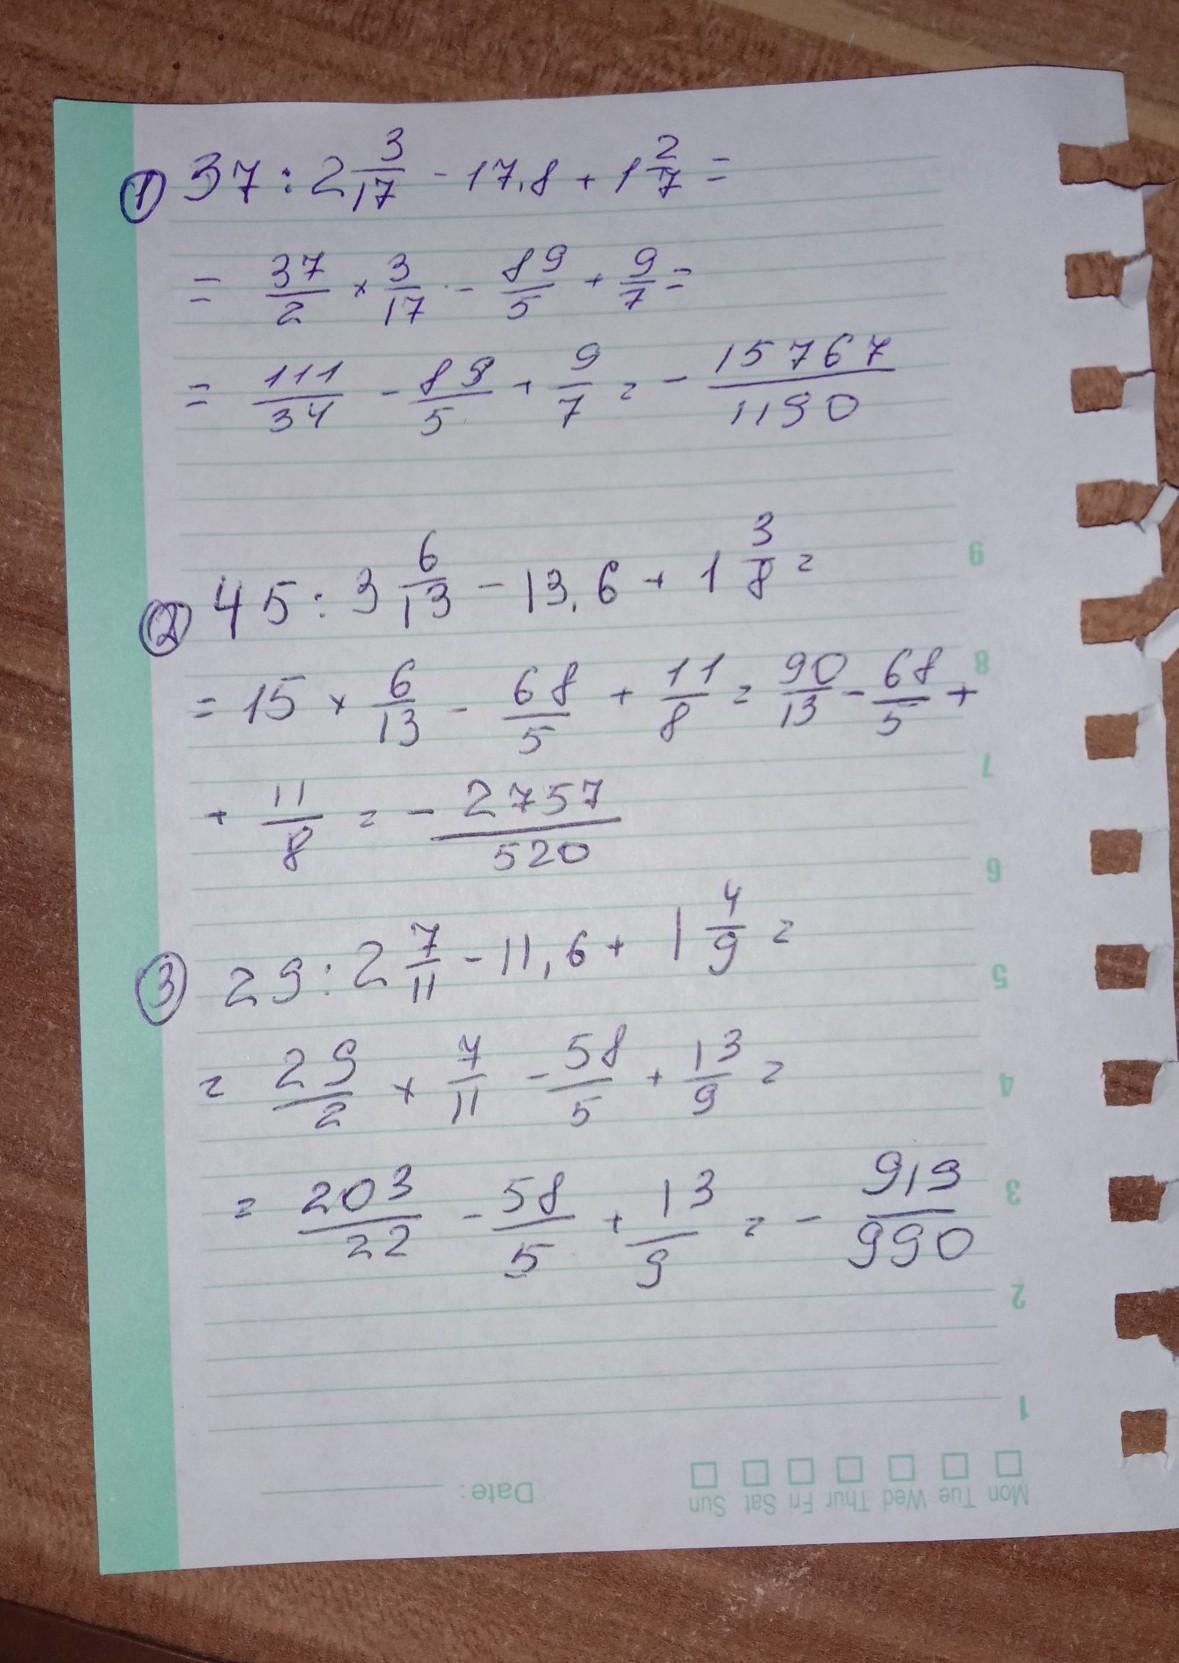 ① 37 : 2 3/17 - 17,8 + 1 2/7 =
= 37/2 × 3/17 - 89/5 + 9/7 =
= 111/34 - 89/5 + 9/7 = - 15767/1190
② 45 : 3 6/13 - 13,6 + 1 3/8 =
= 15 × 6/13 - 68/5 + 11/8 = 90/13 - 68/5 +
+ 11/8 = - 2757/520
③ 29 : 2 7/11 - 11,6 + 1 4/9 =
= 29/2 × 7/11 - 58/5 + 13/9 =
= 203/22 - 58/5 + 13/9 = - 919/990
9
8
7
6
5
4
3
2
1
Date:
Mon Tue Wed Thur Fri Sat Sun